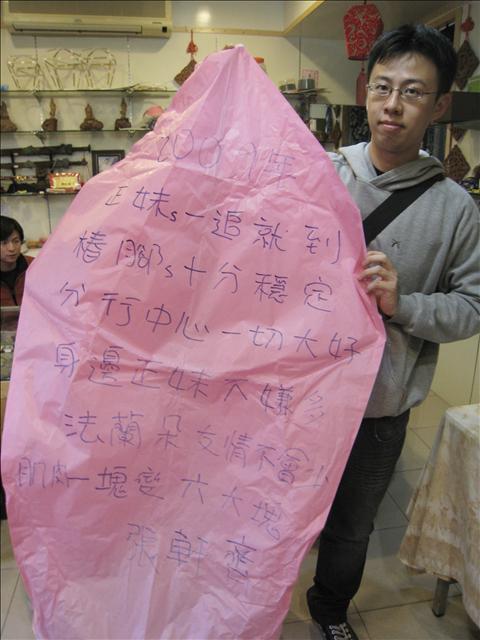 2009年
正妹s一追就到
樁腳s十分穩定
分行中心一切大好
身邊正妹不嫌多
法蘭朵友情不會少
肌肉一塊變六大塊
張軒齊